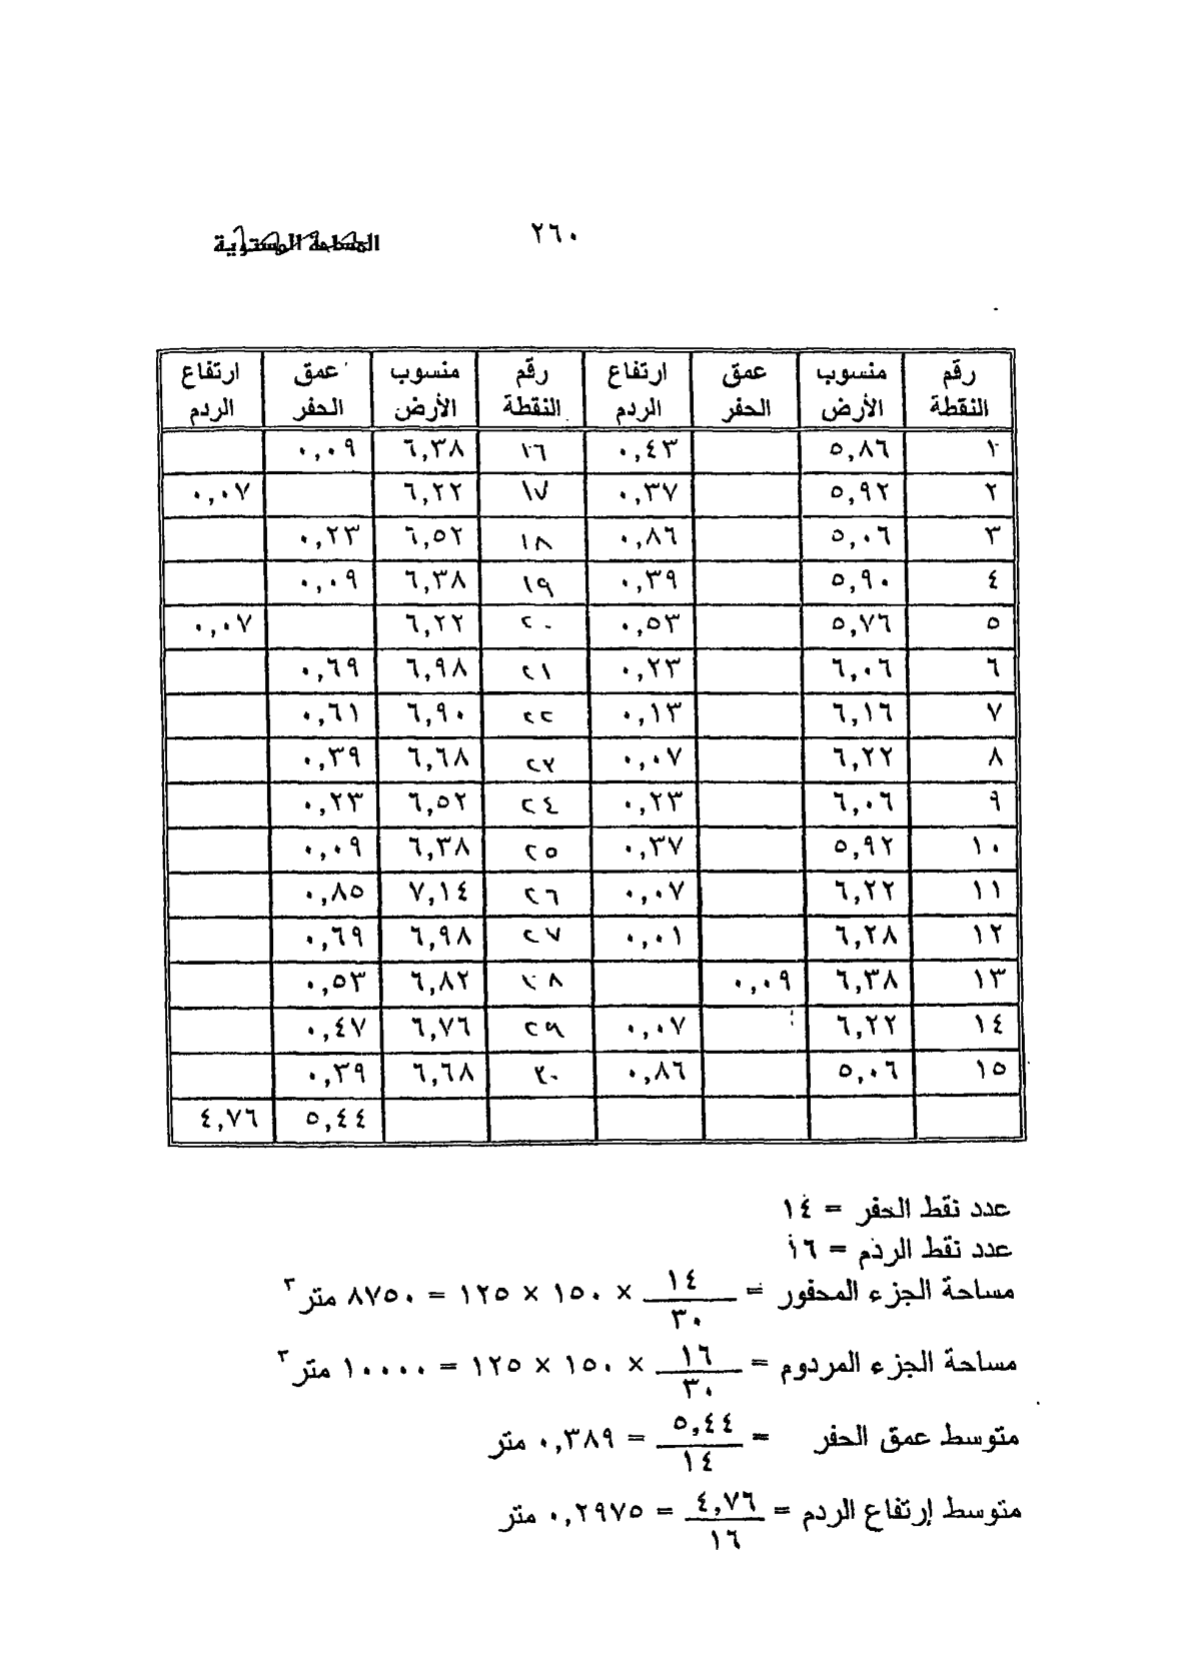 ٢٦٠ المساحة المستوية
رقم النقطة | منسوب الأرض | عمق الحفر | ارتفاع الردم | رقم النقطة | منسوب الأرض | عمق الحفر | ارتفاع الردم
١ | ٥,٨٦ | | ٠,٤٣ | ١٦ | ٦,٣٨ | ٠,٠٩ |
٢ | ٥,٩٢ | | ٠,٣٧ | ١٧ | ٦,٢٢ | | ٠,٠٧
٣ | ٥,٠٦ | | ٠,٨٦ | ١٨ | ٦,٥٢ | ٠,٢٣ |
٤ | ٥,٩٠ | | ٠,٣٩ | ١٩ | ٦,٣٨ | ٠,٠٩ |
٥ | ٥,٧٦ | | ٠,٥٣ | ٢٠ | ٦,٢٢ | | ٠,٠٧
٦ | ٦,٠٦ | | ٠,٢٣ | ٢١ | ٦,٩٨ | ٠,٦٩ |
٧ | ٦,١٦ | | ٠,١٣ | ٢٢ | ٦,٩٠ | ٠,٦١ |
٨ | ٦,٢٢ | | ٠,٠٧ | ٢٣ | ٦,٦٨ | ٠,٣٩ |
٩ | ٦,٠٦ | | ٠,٢٣ | ٢٤ | ٦,٥٢ | ٠,٢٣ |
١٠ | ٥,٩٢ | | ٠,٣٧ | ٢٥ | ٦,٣٨ | ٠,٠٩ |
١١ | ٦,٢٢ | | ٠,٠٧ | ٢٦ | ٧,١٤ | ٠,٨٥ |
١٢ | ٦,٢٨ | | ٠,٠١ | ٢٧ | ٦,٩٨ | ٠,٦٩ |
١٣ | ٦,٣٨ | ٠,٠٩ | | ٢٨ | ٦,٨٢ | ٠,٥٣ |
١٤ | ٦,٢٢ | | ٠,٠٧ | ٢٩ | ٦,٧٦ | ٠,٤٧ |
١٥ | ٥,٠٦ | | ٠,٨٦ | ٣٠ | ٦,٦٨ | ٠,٣٩ |
| | | | | | ٥,٤٤ | ٤,٧٦
عدد نقط الحفر = ١٤
عدد نقط الردم = ١٦
مساحة الجزء المحفور = ١٤/٣٠ × ١٥٠ × ١٢٥ = ٨٧٥٠ متر٢
مساحة الجزء المردوم = ١٦/٣٠ × ١٥٠ × ١٢٥ = ١٠٠٠٠ متر٢
متوسط عمق الحفر = ٥,٤٤/١٤ = ٠,٣٨٩ متر
متوسط إرتفاع الردم = ٤,٧٦/١٦ = ٠,٢٩٧٥ متر